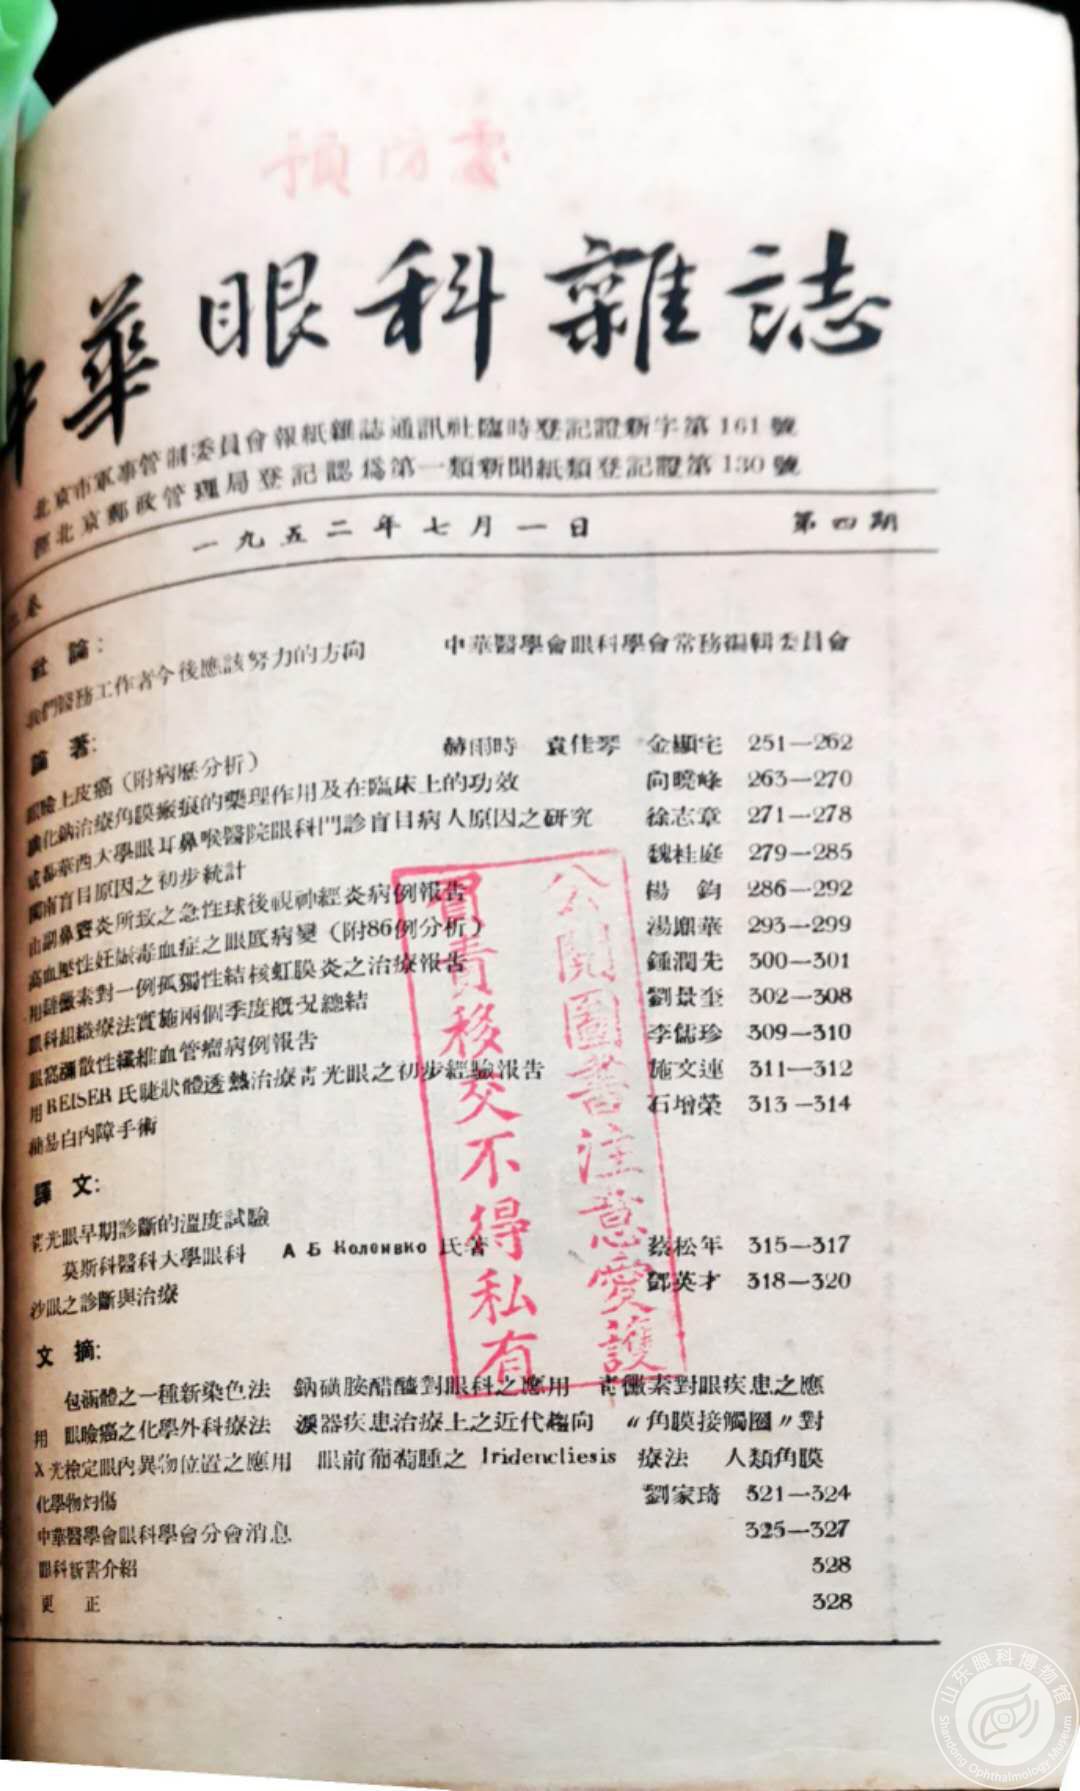 預防處
中華眼科雜誌
北京市軍事管制委員會報紙雜誌通訊社臨時登記證新字第161號
經北京郵政管理局登記認為第一類新聞紙類登記證第130號
一九五二年七月一日 第四期
卷
社論:
我們醫務工作者今後應該努力的方向 中華醫學會眼科學會常務編輯委員會
論著:
眼瞼上皮癌（附病歷分析） 赫雨時 袁佳琴 金顯宅 251—262
碘化鈉治療角膜瘢痕的藥理作用及在臨床上的功效 向曉峰 263—270
成都華西大學眼耳鼻喉醫院眼科門診盲目病人原因之研究 徐志章 271—278
閩南盲目原因之初步統計 魏桂庭 279—285
由副鼻竇炎所致之急性球後視神經炎病例報告 楊鈞 286—292
高血壓性妊娠毒血症之眼底病變（附86例分析） 湯鼐華 293—299
用鏈黴素對一例孤獨性結核虹膜炎之治療報告 鍾潤先 300—301
眼科組織療法實施兩個季度概況總結 劉景奎 302—308
眼窩瀰散性纖維血管瘤病例報告 李儒珍 309—310
用REISER氏睫狀體透熱治療青光眼之初步經驗報告 施文連 311—312
簡易白內障手術 石增榮 313—314
譯文:
青光眼早期診斷的溫度試驗
莫斯科醫科大學眼科 А Б Коленвко 氏著 蔡松年 315—317
沙眼之診斷與治療 鄧英才 318—320
文摘:
包涵體之一種新染色法 鈉磺胺醋醯對眼科之應用 青黴素對眼疾患之應
用 眼瞼癌之化學外科療法 淚器疾患治療上之近代趨向 〃角膜接觸圈〃對
X光檢定眼內異物位置之應用 眼前葡萄腫之 Iridencliesis 療法 人類角膜
化學物灼傷 劉家琦 321—324
中華醫學會眼科學會分會消息 325—327
眼科新書介紹 328
更正 328
公開圖書注意愛護
負責移交不得私有
山东眼科博物馆
Shandong Ophthalmology Museum